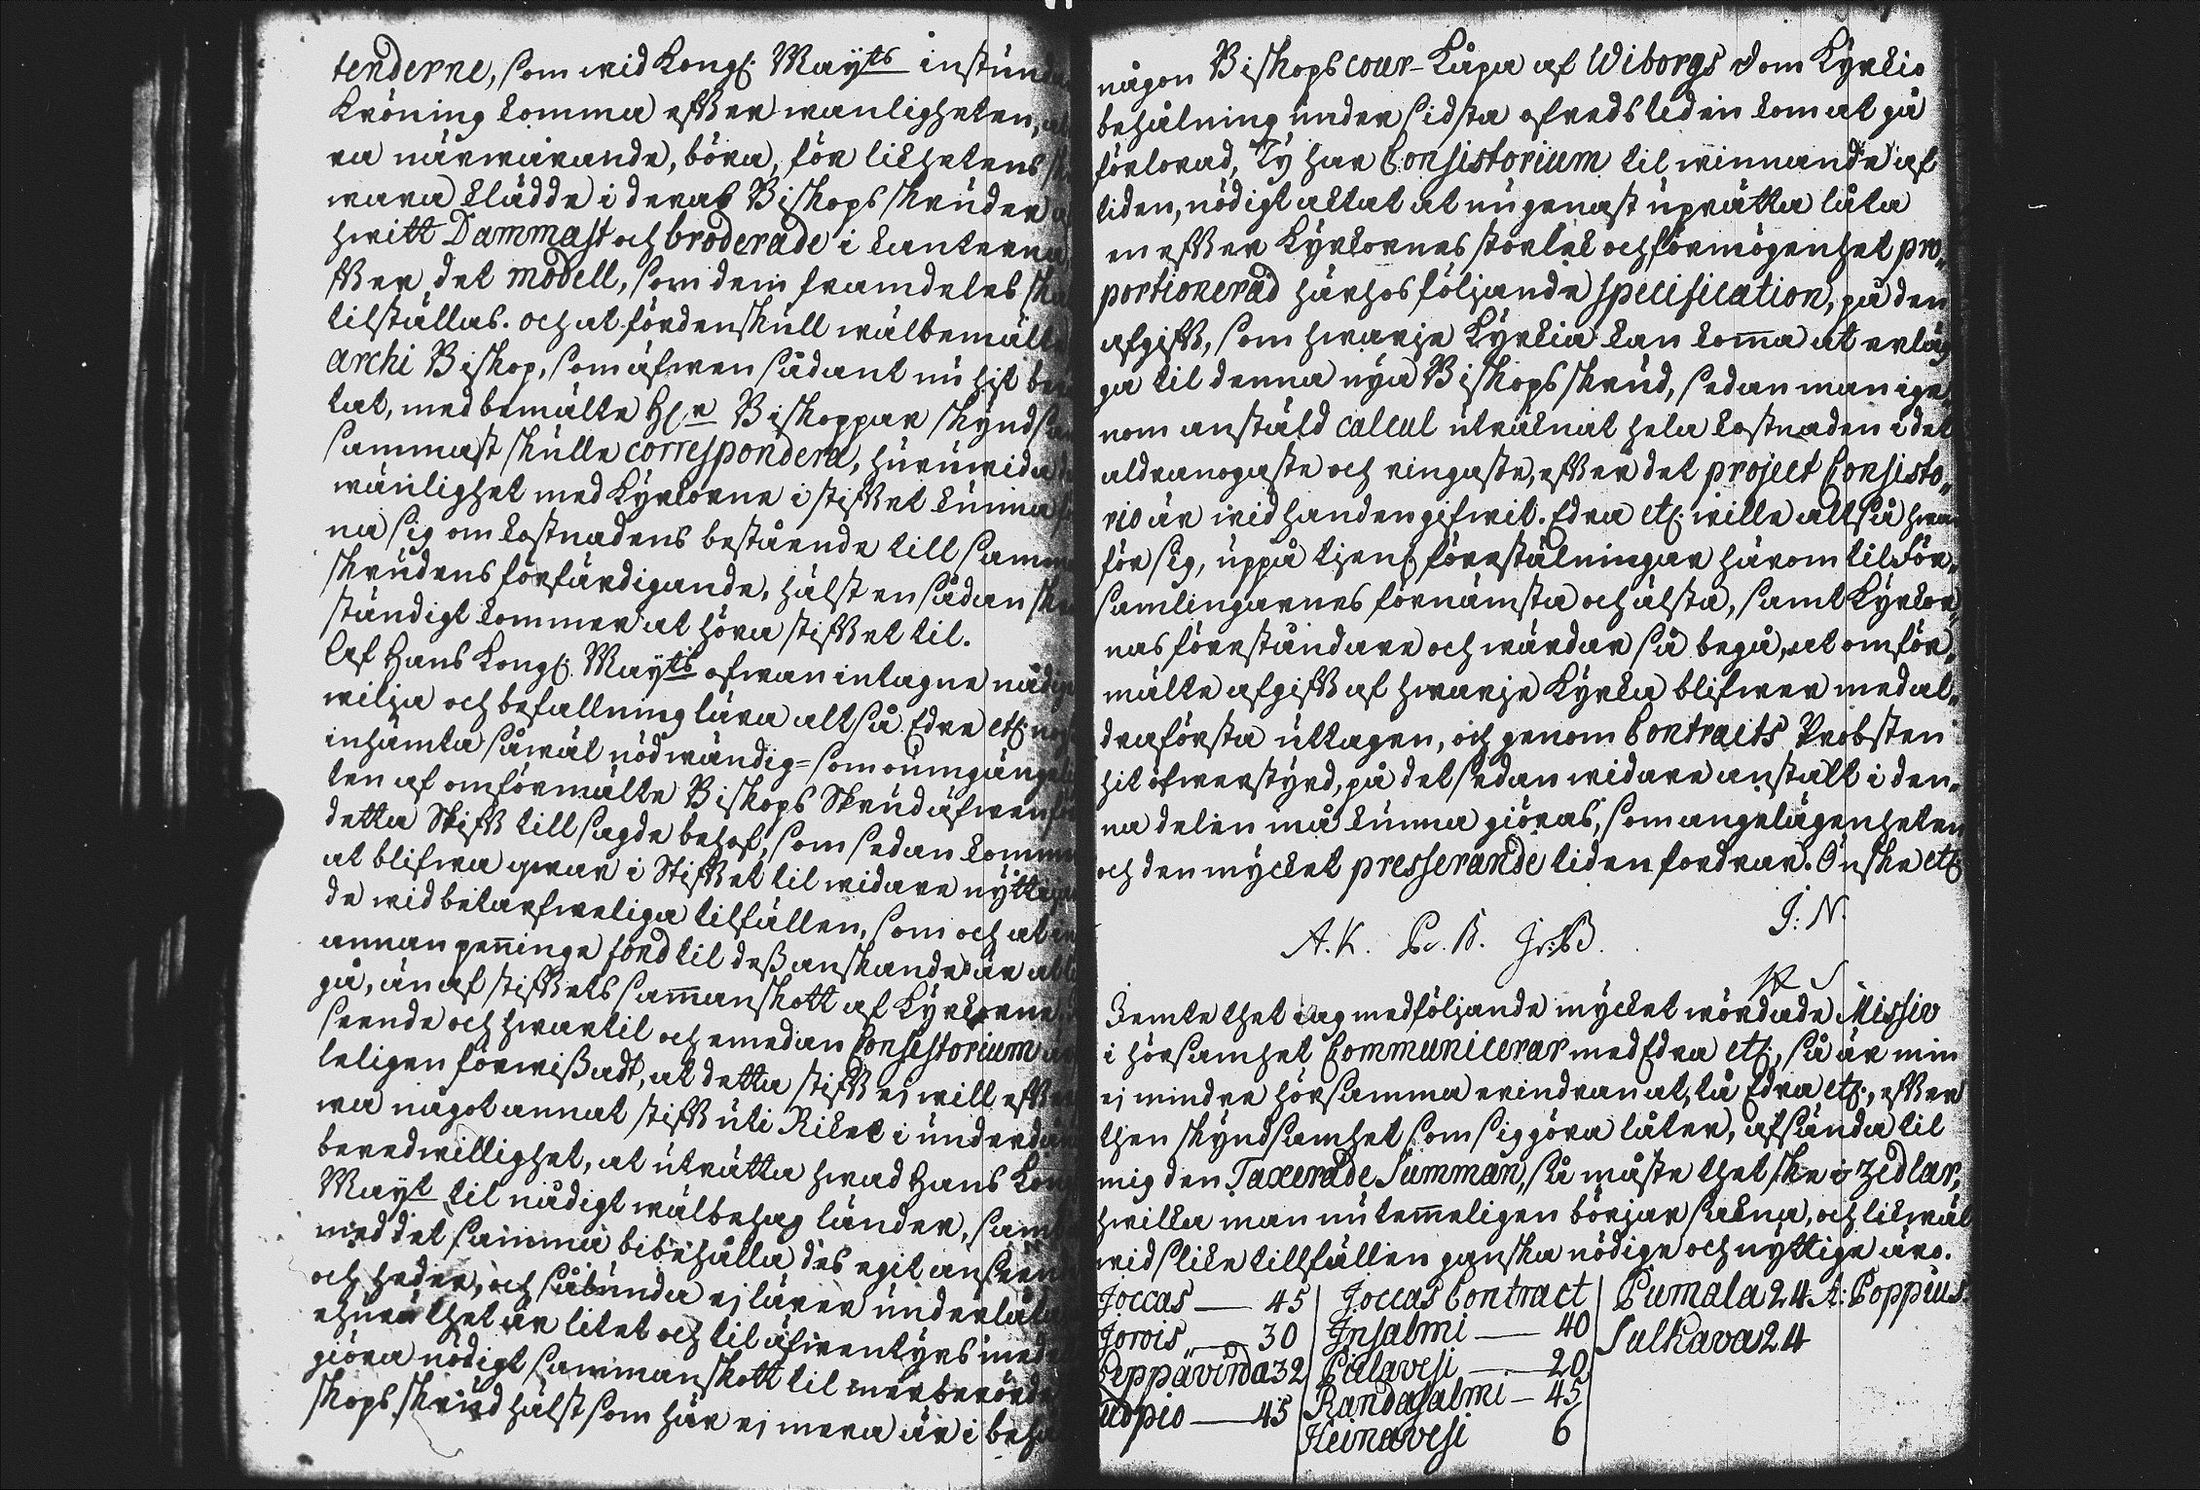 tenderne, som wid Kongl. Mayts instund
Kröning komma efter wanligheten, at
ra närwarande, böra, för likhetens sk
wara klädde i deras Biskops skruder a
hwitt Dammast och broderade i kanterna
fter det modell, som dem framdeles ska
tilställas. och at fördenskull wälbemälte
archi Biskop, som äfwen sådant nu hit be
tat, med bemälte H.r Biskoppar skynds
sammast skulle correspondera, huruwida
wänlighet med Kyrkorne i stiftet kunna
na sig om kostnadens bestående till samm
skrudens förfärdigande, hälst en sådan sk
ständigt kommer at höra stiftet til.
Af Hans Kongl. Mayts ofwan intagne nådig
wilja och befallning lära altså Edre etc. nog
inhämta såwäl nödwändig= som oumgängel
ten af omförmälte Biskops Skrud äfwen fö
detta Stift till sagde behof, som sedan komm
at blifwa qwar i Stiftet til widare nyttja
de wid betarfweliga tilfällen, som och at in
annan penninge fond til dess anskande är att
gå, än af stiftets sammanskott af Kyrkorne
seende och hwartil och emedan Consistorium
leligen förwissadt, at detta stift ej will eft
wa något annat stift uti Riket i underdån
beredwillighet, at uträtta hwad Hans Kon
Mayt til nådigt wälbehag länder, sam
med det samma bibehålla des egit anseende
och heder, och sålunda ej lärer underlåta
ehuru thet är litet och til äfwentyrs med
giöra nödigt sammanskott til merberörde
skops skrud hälst som här ej mera är i beh
någon Biskops cour-Kåpa af Wiborgs dom Kyrkio
behålning under sidsta ofredstiden kom at gå
förlorad, Ty har Consistorium til winnande af
tiden, nödigt aktat at nu genast uprätta låta
en efter Kyrkornes storlek och förmögenhet pro„
portionerad härhos följande specification, på den
afgift, som hwarje Kyrkia kan komma at erläg
ga til denna nya Biskops skrud, sedan man ige„
nom anstäld calcul uträknat hela kostnaden i det
aldranogaste och ringaste, efter det project Consisto„
rio är widhanden gifwit. Edra etc. wille altså hwar
för sig, uppå tjenl. föreställningar härom til För„
samlingarnes förnämsta och älsta, samt Kyrkor„
nas föreståndare och wärdar så begå, at omför„
mälte afgift af hwarje Kyrka blifwer med al„
draförsta uttagen, och genom Contracts Probsten
hit öfwerstyrd, på det sedan widare anstalt i den„
na delen må kunna giöras, som angelägenheten
och den mycket presserande tiden fordrar. Önske etc.
J: N.
A. K. P. B. Jr: B.
Jemte thet iag medföljande mycket wördade Missiv
i hörsamhet Communicerar med Edra etc., så är min
ej mindre hörsamma erindran at, tå Edra etc., efter
then skyndsamhet som sig göra låter, afsända til
mig den Taxerade Summan, så måste thet ske i zedlar,
hwilka man nu temmeligen börjar sakna, och likwäl
wid slike tillfällen ganska nödige och nyttige äro.
Joccas — 45 | Joccas Contract | Pumala 24 A: Poppius
Jorois „— 30 | Jnsalmi — 40 | Sulkava 24
Leppävirda 32 | Pielavesi — 20
uopio — 45 | Randasalmi — 45
Heinavesi 6